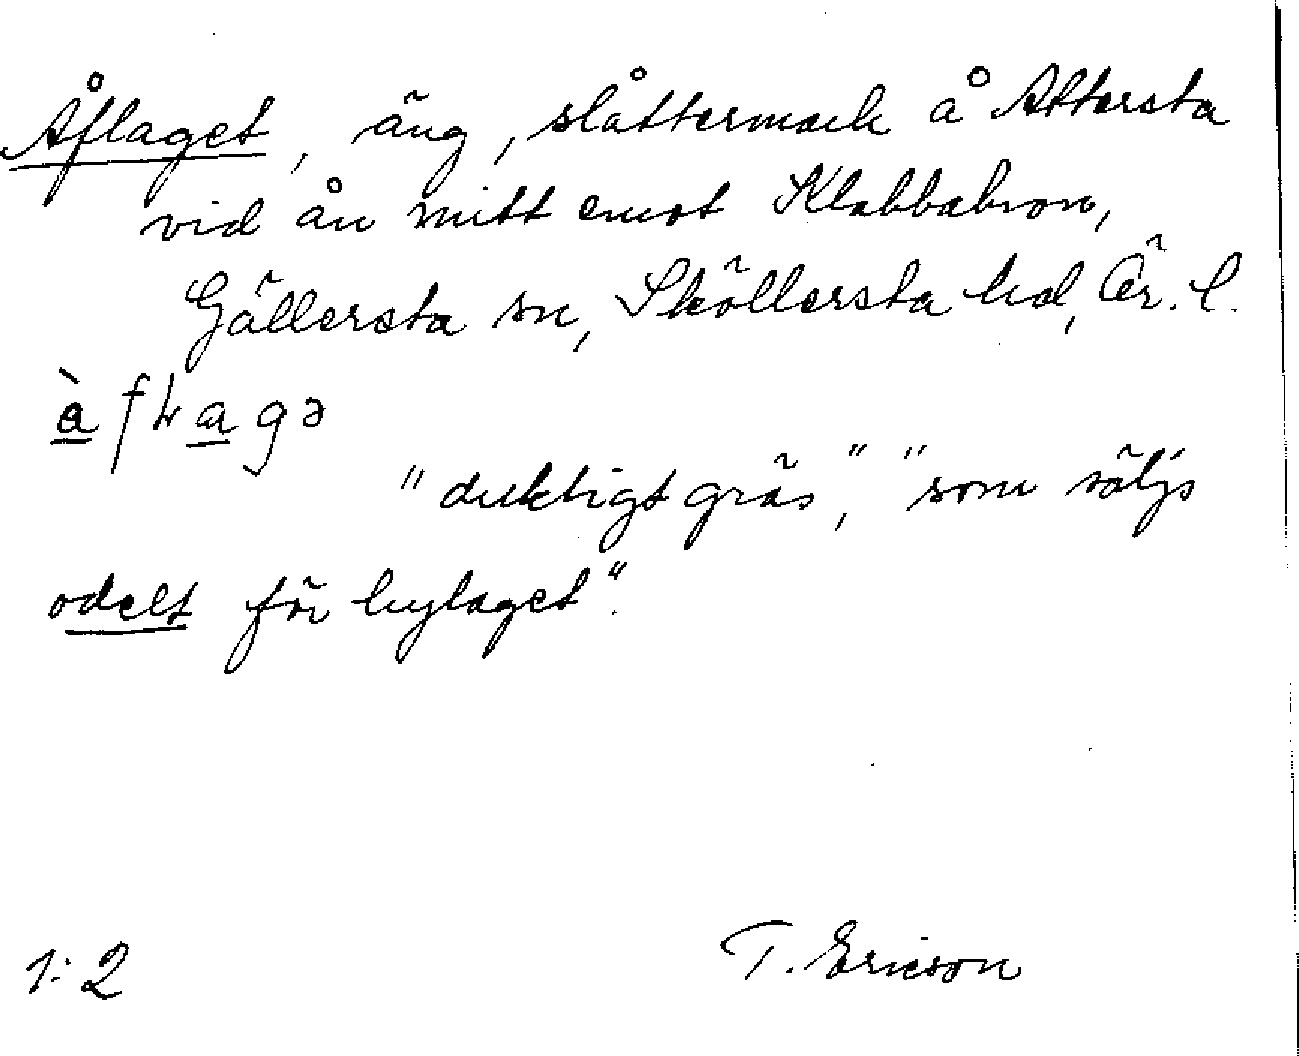 Åflaget, äng, slåttermark å Attersta
vid ån mitt emot Klabbabron,
Gällersta sn, Sköllersta hd, Ör. l.
"duktigt gräs", "som säljs
odelt för bylaget".
1:2 T. Ericson